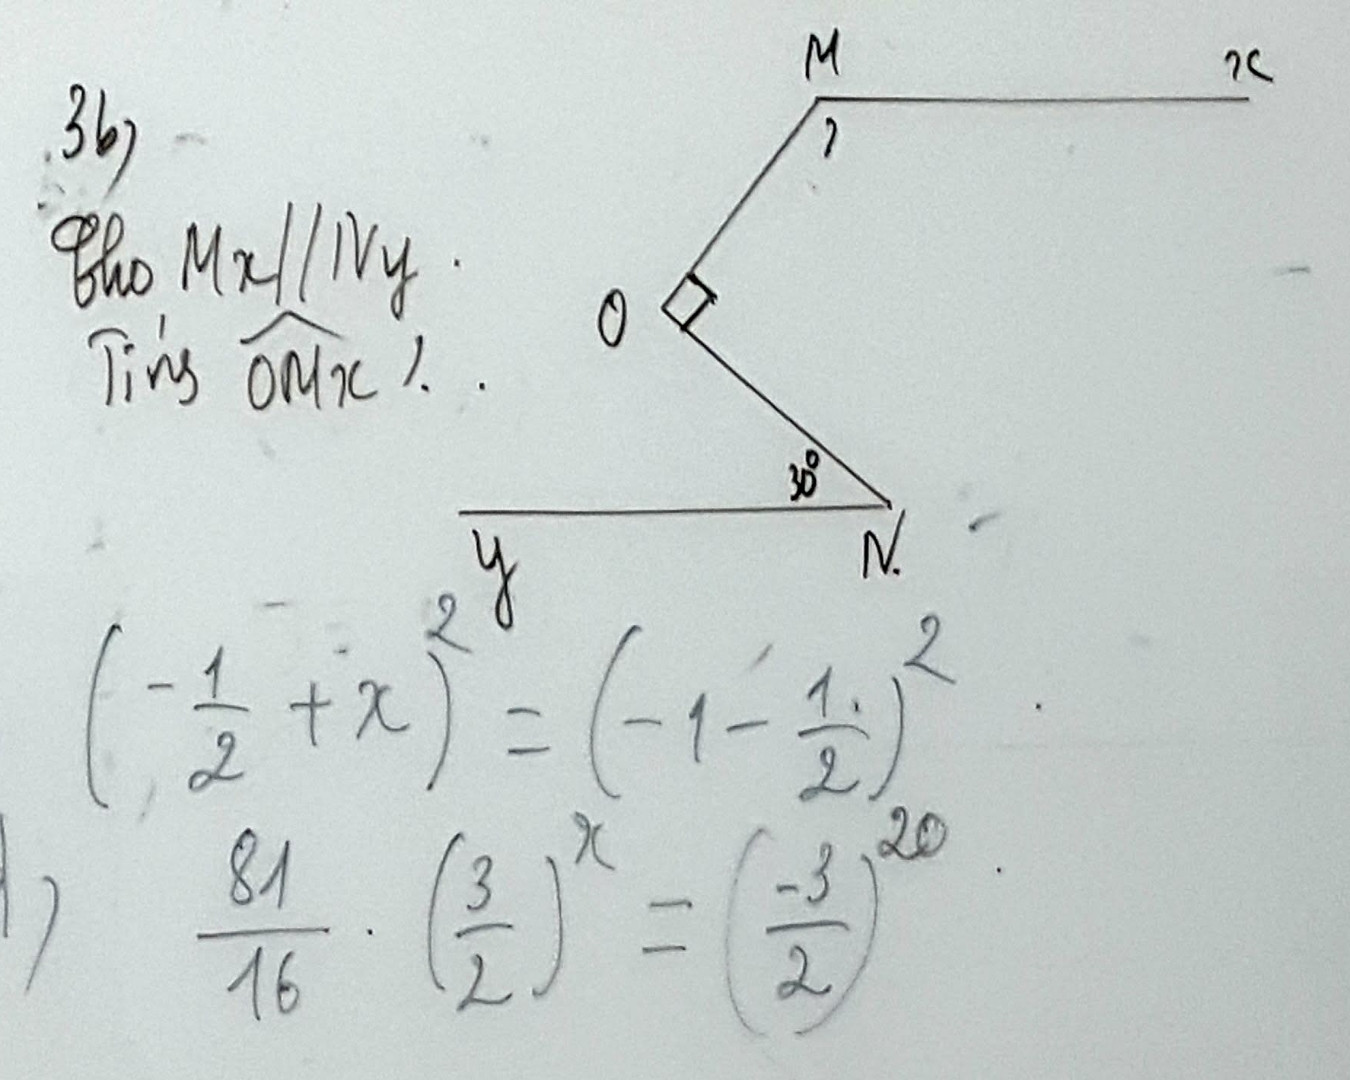 3b,
Cho Mx // Ny.
Tính \widehat{OMx} ?.
M x
?
O
30°
y N.
(-\frac{1}{2} + x)^2 = (-1 - \frac{1}{2})^2.
\frac{81}{16} . (\frac{3}{2})^x = (\frac{-3}{2})^{20}.